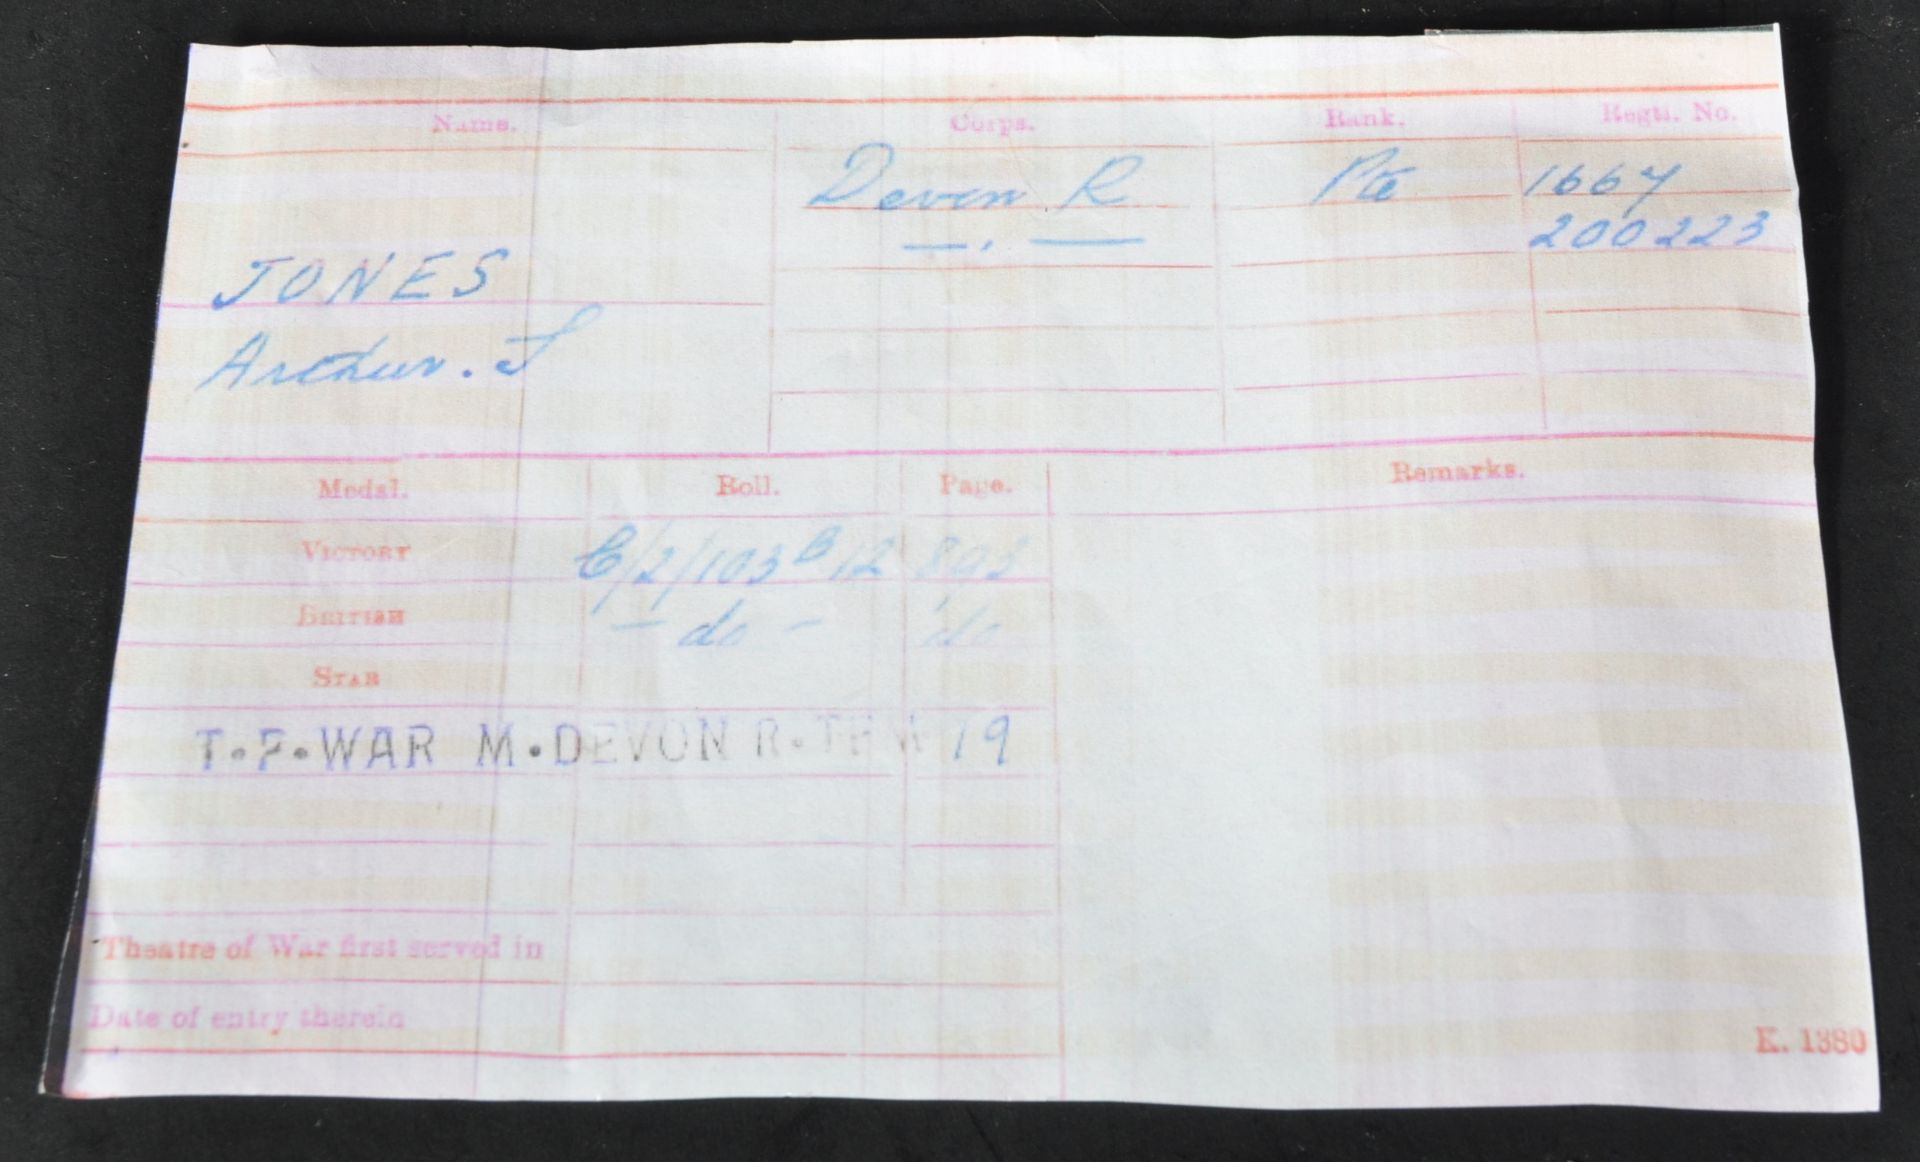 Name. Corps. Rank. Regtl. No.
Devon R Pte 1667
—〃— 200223
JONES
Arthur. J
Medal. Roll. Page. Remarks.
VICTORY C/2/103 B 12 893
BRITISH - do - do
STAR
T.F.WAR M.DEVON R.TFW 19
Theatre of War first served in
Date of entry therein
K. 1380